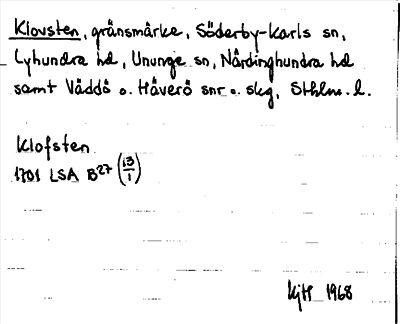 Klovsten, gränsmärke, Söderby-Karls sn,
Lyhundra hd, Ununge sn, Närdinghundra hd
samt Väddö o. Häverö snr o. skg, Sthlm. l.
Klofsten
1701 LSA B27 (13/1)
1968